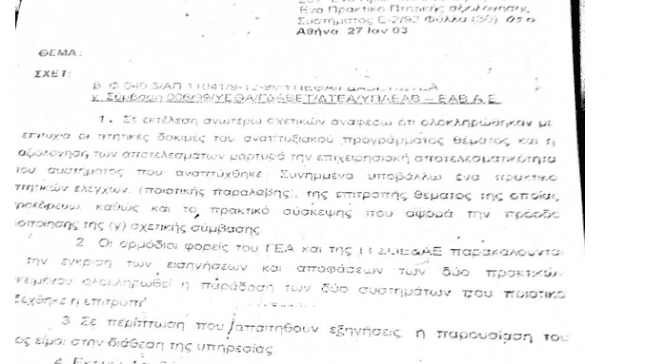 Ένα Πρακτικό Πτητικής αξιολόγησης,
Συστήματος Ε-2/92 Φύλλα (30)
Αθήνα 27 Ιαν 03
ΘΕΜΑ:
ΣΧΕΤ:
γ. Σύμβαση 006/99/ΥΕΘΑ/ΓΔΑΒΕΤ/ΔΤΕΑ/ΥΠΛΕΑΒ – ΕΑΒ Α.Ε
1. Σε εκτέλεση ανωτέρω σχετικών αναφέρω ότι ολοκληρώθηκαν με
επιτυχία οι πτητικές δοκιμές του αναπτυξιακού προγράμματος θέματος και η
αξιολόγηση των αποτελεσμάτων μαρτυρά την επιχειρησιακή αποτελεσματικότητα
του συστήματος που αναπτύχθηκε Συνημμένα υποβάλλω ένα πρακτικό
πτητικών ελέγχων, (ποιοτικής παραλαβής), της επιτροπής θέματος της οποίας
καθώς και το πρακτικό σύσκεψης που αφορά την
της (γ) σχετικής σύμβασης
2 Οι αρμόδιοι φορείς του ΓΕΑ και της παρακαλούνται
την έγκριση των εισηγήσεων και αποφάσεων των δύο πρακτικών
ολοκληρωθεί η παράδοση των δύο συστημάτων που ποιοτικά
η επιτροπή
3 Σε περίπτωση που απαιτηθούν εξηγήσεις ή παρουσίαση του
είμαι στην διάθεση της υπηρεσίας